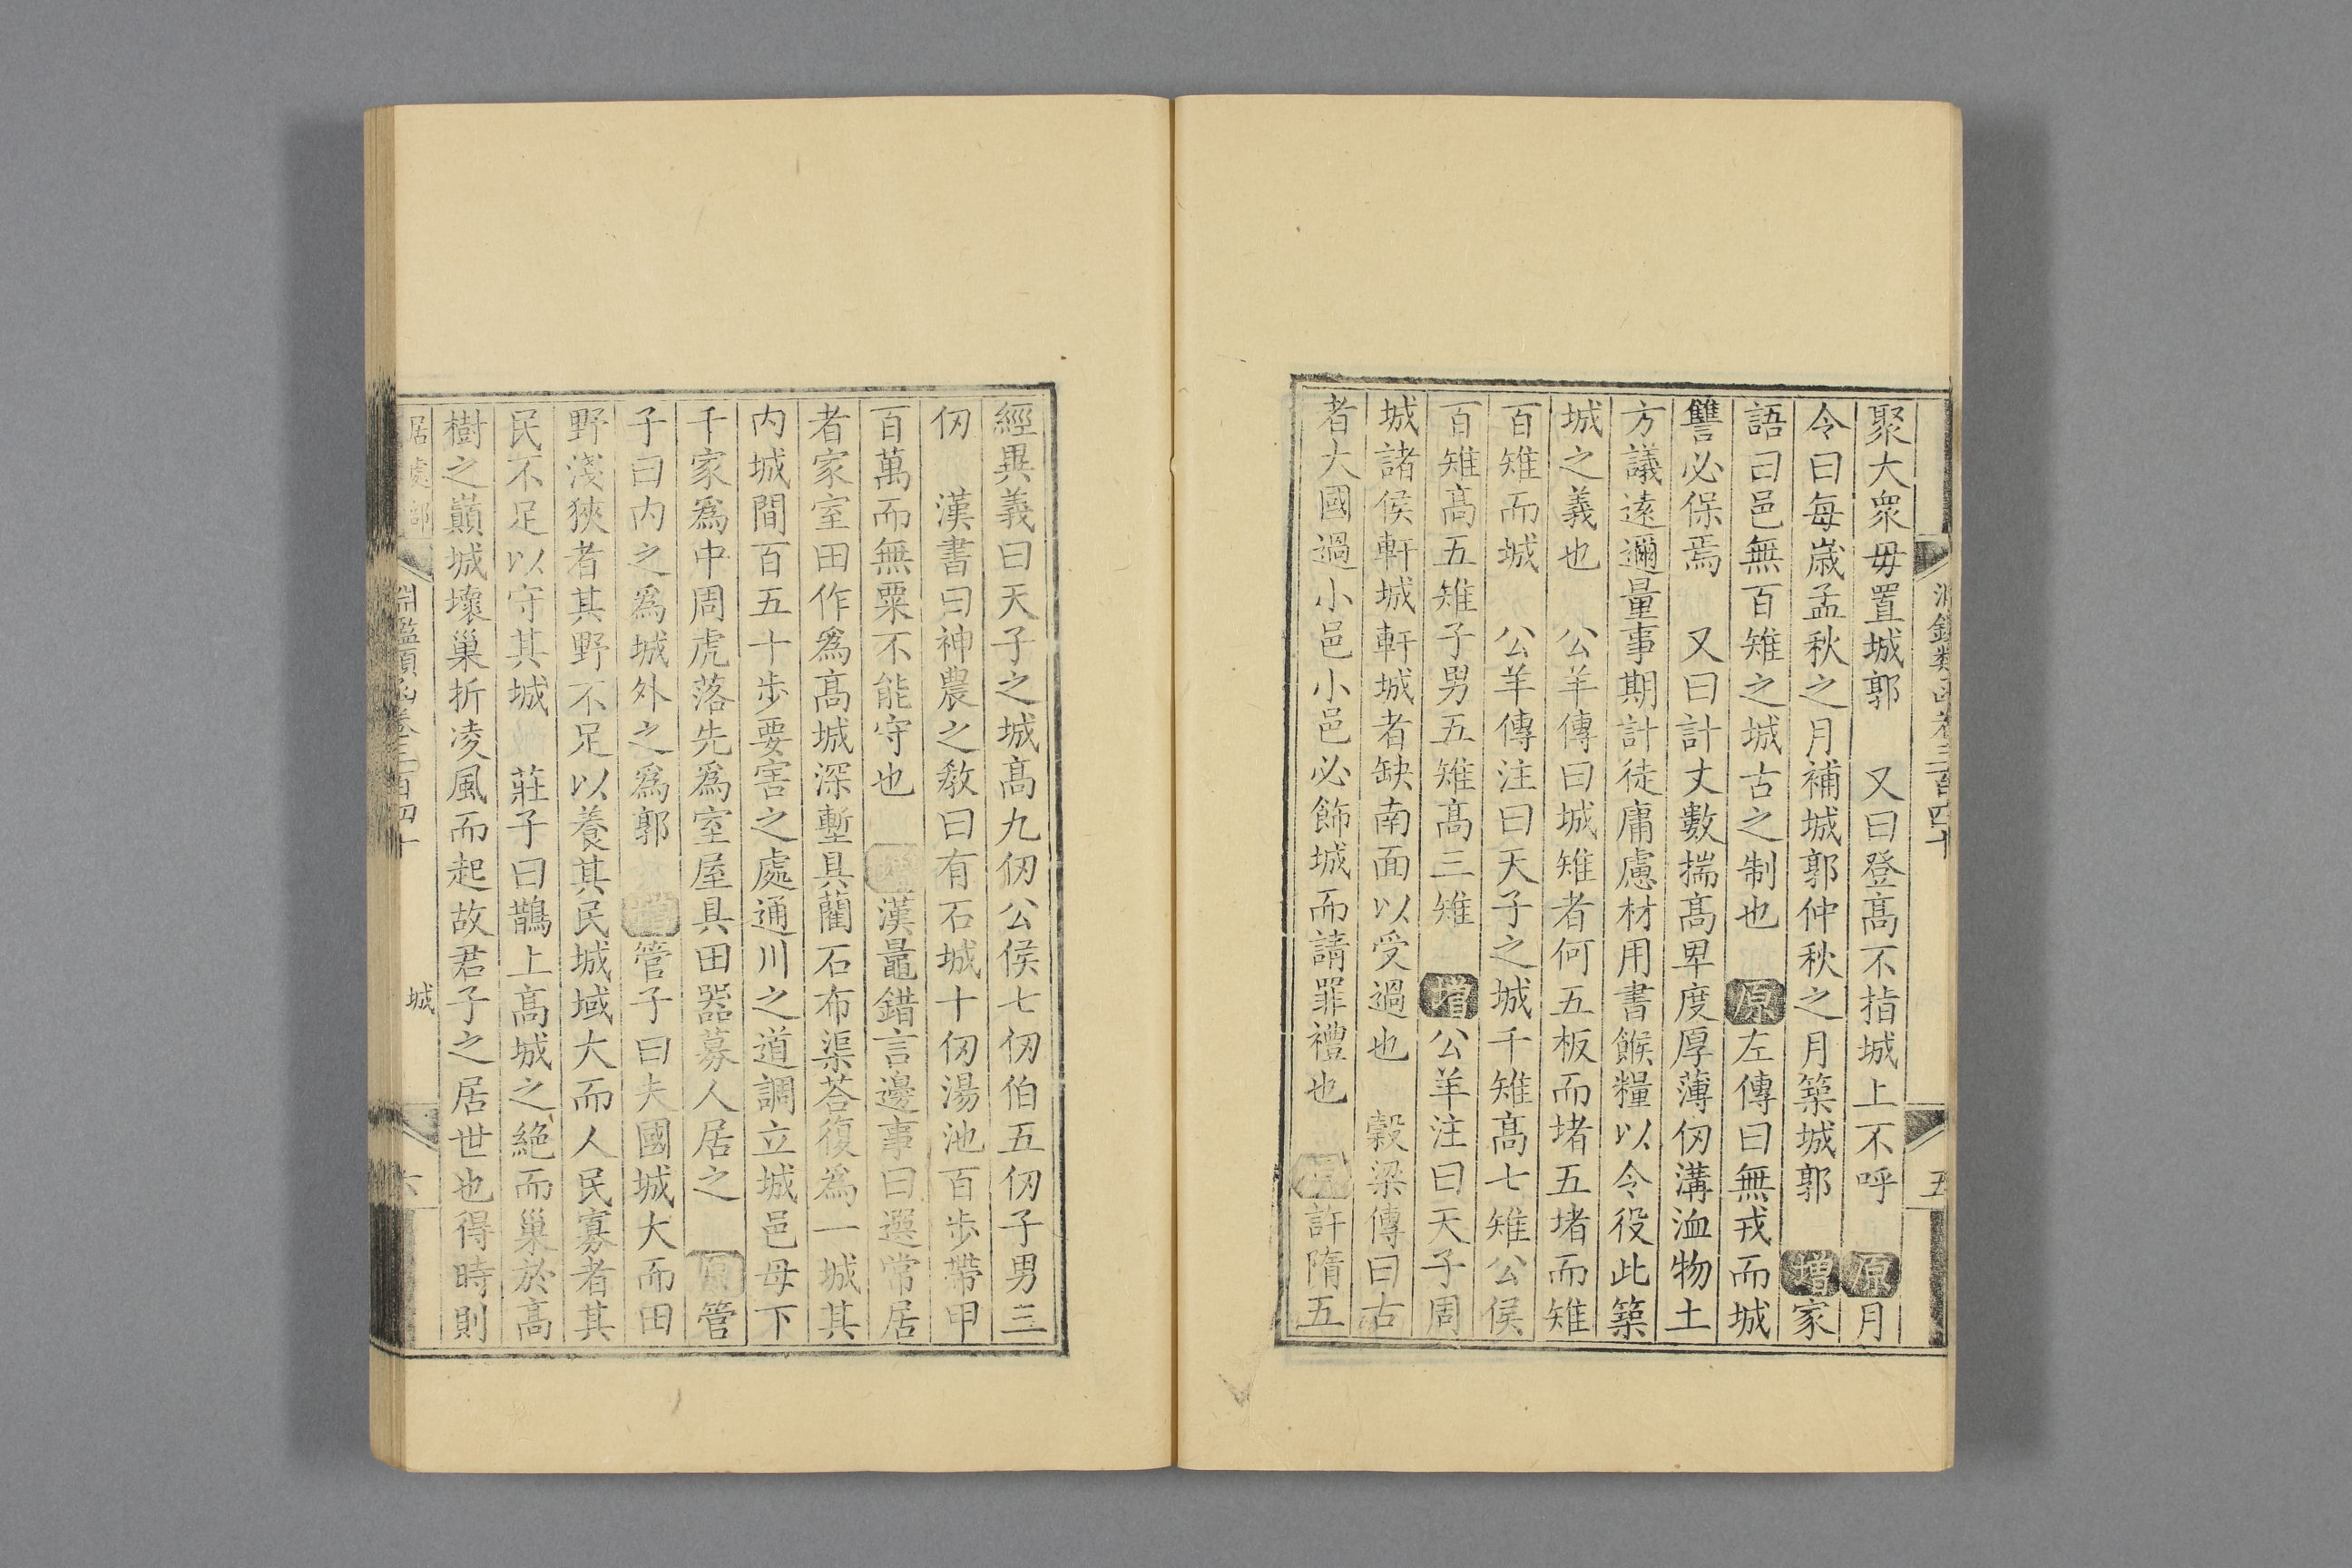 淵鑑類函卷三百四十
五
聚大衆毋置城郭　又曰登高不指城上不呼　原月
令曰每歲孟秋之月補城郭仲秋之月築城郭　增家
語曰邑無百雉之城古之制也　原左傳曰無戎而城
讐必保焉　又曰計丈數揣高卑度厚薄仞溝洫物土
方議遠邇量事期計徒庸慮材用書餱糧以令役此築
城之義也　公羊傳曰城雉者何五板而堵五堵而雉
百雉而城　公羊傳注曰天子之城千雉高七雉公侯
百雉高五雉子男五雉高三雉　增公羊注曰天子周
城諸侯軒城軒城者缺南面以受過也　穀梁傳曰古
者大國過小邑小邑必飾城而請罪禮也　原許隋五
經異義曰天子之城高九仞公侯七仞伯五仞子男三
仞　漢書曰神農之敎曰有石城十仞湯池百步帶甲
百萬而無粟不能守也　增漢鼂錯言邊事曰選常居
者家室田作爲高城深塹具藺石布渠荅復爲一城其
内城間百五十步要害之處通川之道調立城邑毋下
千家爲中周虎落先爲室屋具田器募人居之　原管
子曰内之爲城外之爲郭　增管子曰夫國城大而田
野淺狹者其野不足以養其民城域大而人民寡者其
民不足以守其城　莊子曰鵲上高城之絶而巢於高
樹之巔城壞巢折凌風而起故君子之居世也得時則
居處部
淵鑑類函卷三百四十
城
六